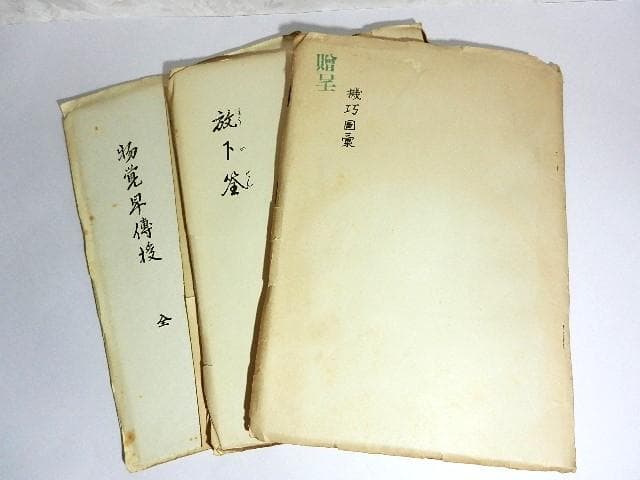 贈呈
機巧圖彙
放下筌
物覚早傳授
全